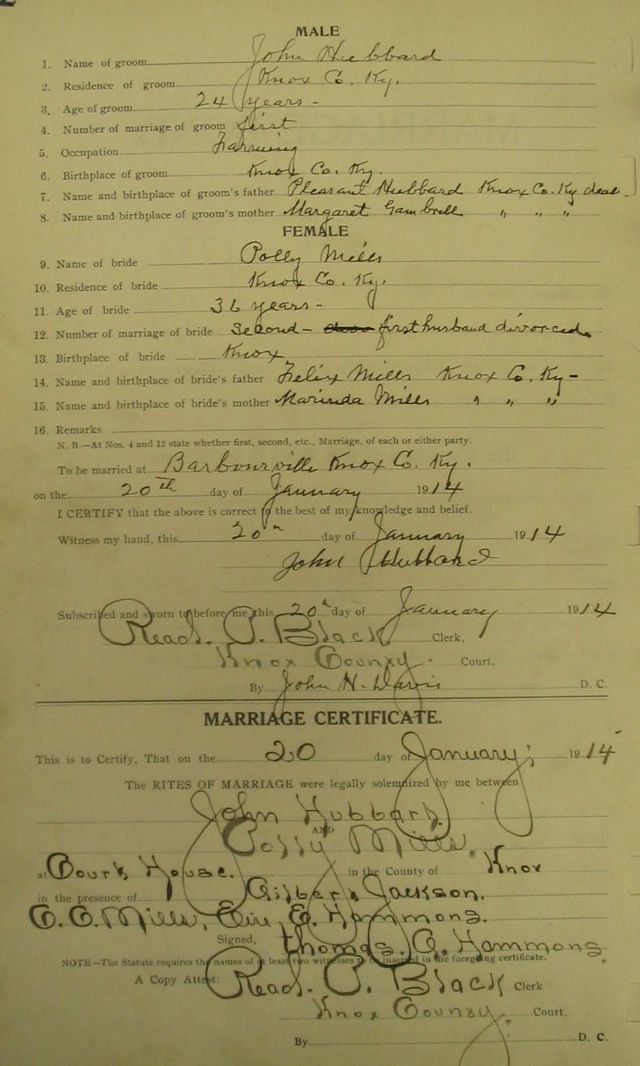 MALE
1. Name of groom John Hubbard
2. Residence of groom Knox Co. Ky.
3. Age of groom 24 years -
4. Number of marriage of groom first
5. Occupation Farming
6. Birthplace of groom Knox Co. Ky.
7. Name and birthplace of groom's father Pleasant Hubbard Knox Co. Ky dead
8. Name and birthplace of groom's mother Margaret Gambrell " " "
FEMALE
9. Name of bride Polly Mills
10. Residence of bride Knox Co. Ky.
11. Age of bride 36 years -
12. Number of marriage of bride Second - first husband divorced
13. Birthplace of bride Knox
14. Name and birthplace of bride's father Felix Mills Knox Co. Ky -
15. Name and birthplace of bride's mother Marinda Mills " " "
16. Remarks
N. B.—At Nos. 4 and 12 state whether first, second, etc., Marriage, of each or either party.
To be married at Barbourville Knox Co. Ky.
on the 20th day of January 1914
I CERTIFY that the above is correct to the best of my knowledge and belief.
Witness my hand, this 20th day of January 1914
John Hubbard
Subscribed and sworn to before me this 20th day of January 1914
Read. P. Black Clerk,
Knox County. Court.
By John H. Davis D. C.
MARRIAGE CERTIFICATE.
This is to Certify, That on the 20 day of January, 1914
The RITES OF MARRIAGE were legally solemnized by me between
John Hubbard.
AND
Polly Mills.
at Court House. in the County of Knox
in the presence of Gilbert Jackson.
Mills, E. Hammons.
Signed, Thomas. G. Hammons.
NOTE—The Statute requires the names of at least two witnesses to be inserted in the foregoing certificate.
A Copy Attest: Read. P. Black Clerk
Knox County. Court,
By D. C.